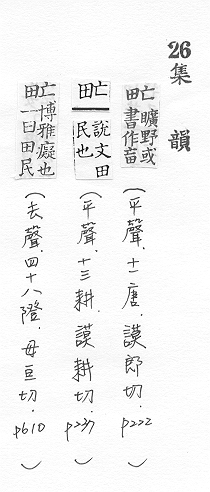 26集韻
甿 曠野或書作(平聲.十一唐.謨郎切.p222)
甿 說文田民也(平聲.十三耕.謨耕切.p237)
甿 博雅癡也一曰田民(去聲四十八隥.母亘切.p610)